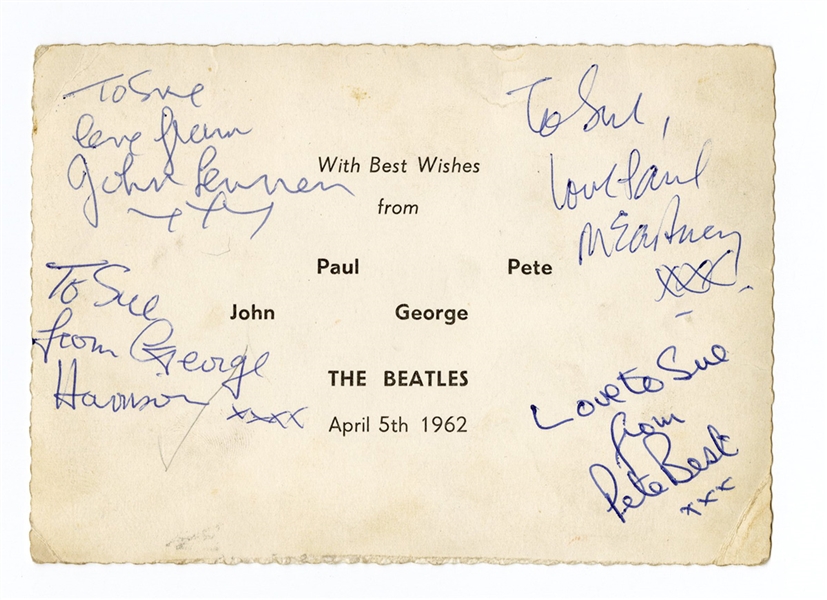 To Sue
love from
John Lennon
xxx
To Sue,
love Paul
McCartney
xxx.
With Best Wishes
from
Paul Pete
John George
THE BEATLES
April 5th 1962
To Sue
from George
Harrison xxxx
Love to Sue
from
Pete Best
xxx